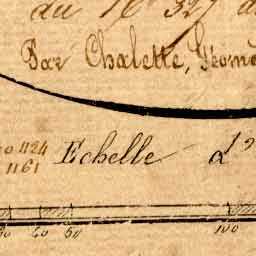 du 16 327 d
Par Chalette, Géom
o 1124
1161
Echelle d'
40 50 100